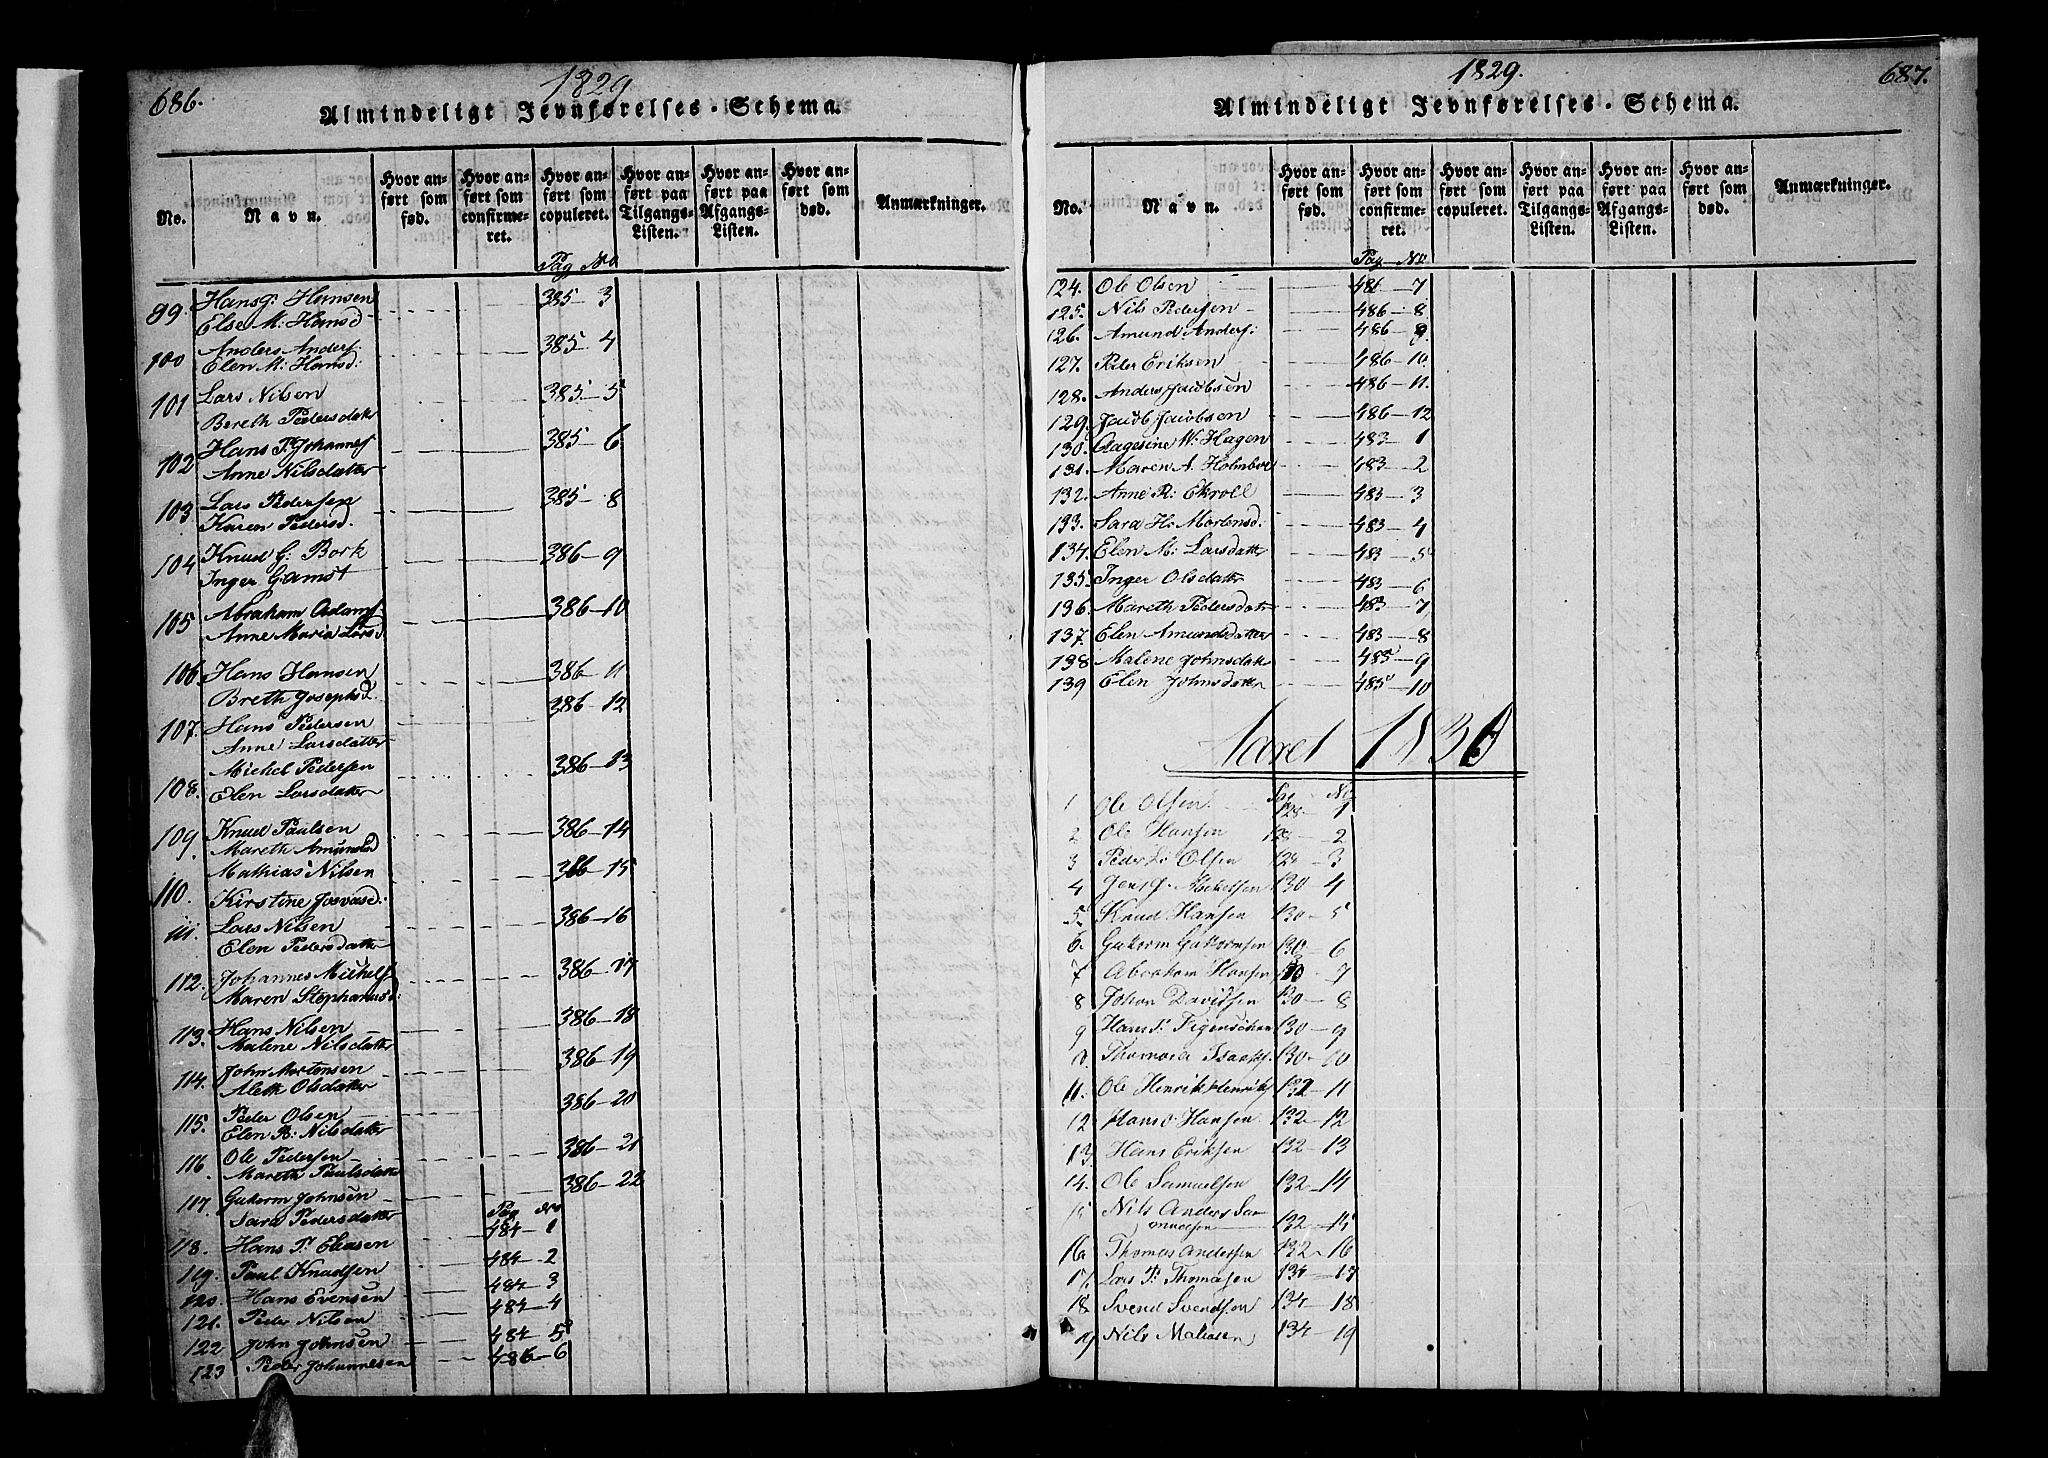 686.
1829
Almindeligt Jevnførelses-Schema.
No.
Navn.
Hvor anført som fød.
Hvor anført som confirmeret.
Hvor anført som copuleret.
Hvor anført paa Tilgangs-Listen.
Hvor anført paa Afgangs-Listen.
Hvor anført som død.
Anmærkninger.
Pag No
99. Hans J: Hansen 385-3
Else M: Hansd
100 Anders Anders: 385-4
Elen M: Hansd:
101 Lars Nilsen 385-5
Bereth Pedersdatter
102 Hans P. Johannes 385-6
Anne Nilsdatter
103 Lars Pedersen 385-8
Karen Pedersd.
104 Knud G: Bork 386-9
Inger Gamst
105 Abraham Adams: 386-10
Anne Maria Larsd
106 Hans Hansen 386-11
Breth Josephsd.
107. Hans Pedersen 386-12
Anne Larsdatter
108. Michel Pedersen 386-13
Elen Larsdatter
109. Knud Paulsen 386-14
Mareth Amundsd
110. Mathias Nilsen 386-15
Kirstine Josvasd:
111. Lars Nilsen 386-16
Elen Pedersdatter
112. Johannes Michels 386-17
Maren Stephanusd:
113. Hans Nilsen 386-18
Malene Nilsdatter
114. John Mortensen 386-19
Aleth Olsdatter
115. Peder Olsen 386-20
Elen R: Nilsdatter
116 Ole Pedersen 386-21
Mareth Paulsdatter
117. Guttorm Johnsen 386-22
Sara Pedersdatter
Pag No
118. Hans P. Eliasen 484-1
119. Paul Knudsen 484-2
120. Hans Evensen 484-3
121. Peder Nilsen 484-4
122 John Johnsen 484-5
123 Peder Johannesen 486-6
1829.
687.
Almindeligt Jevnførelses-Schema.
No.
Navn.
Hvor anført som fød.
Hvor anført som confirmeret.
Hvor anført som copuleret.
Hvor anført paa Tilgangs-Listen.
Hvor anført paa Afgangs-Listen.
Hvor anført som død.
Anmærkninger.
Pag-No
124. Ole Olsen 486-7
125. Nils Pedersen 486-8
126. Amund Anders: 486-9.
127. Peder Eriksen 486-10.
128. Anders Jacobsen 486-11.
129. Jacob Jacobsen 486-12
130. Aagesine W: Hagen 483-1
131. Maren A. Holmboe 483-2
132. Anne R: Ekroll 483-3
133. Sara H: Mortensd: 483-4
134. Elen M: Larsdatter 483-5
135. Inger Olsdatter 483-6
136. Mareth Pedersdatr 483-7
137. Elen Amundsdatter 483-8
138 Malene Johnsdatter 485-9
139 Elen Johnsdatter 485-10
Aaret 1830
Pag No
1 Ole Olsen 128-1
2 Ole Hansen 128-2
3 Peder Olsen 128-3
4 Jens J. Mickelsen 130-4
5. Knud Hansen 130-5
6. Guttorm Guttormsen 130-6
7 Abraham Hansen 130-7
8 Johan Davidsen 130-8
9 Hans P. Figenschau 130-9
10. Isaaks. 130-10
11. Ole Henrik Henriks 132-11
12 Hans Hansen 132-12
13 Hans Eriksen 132-13
14. Ole Samuelsen 132-14
15 Nils Anders Sa-
muelsen 132-15
16 Thomas Andersen 132-16
17. Lars P. Thomasen 134-17
18 Svend Svendsen 134-18
19 Nils Matisen 134-19